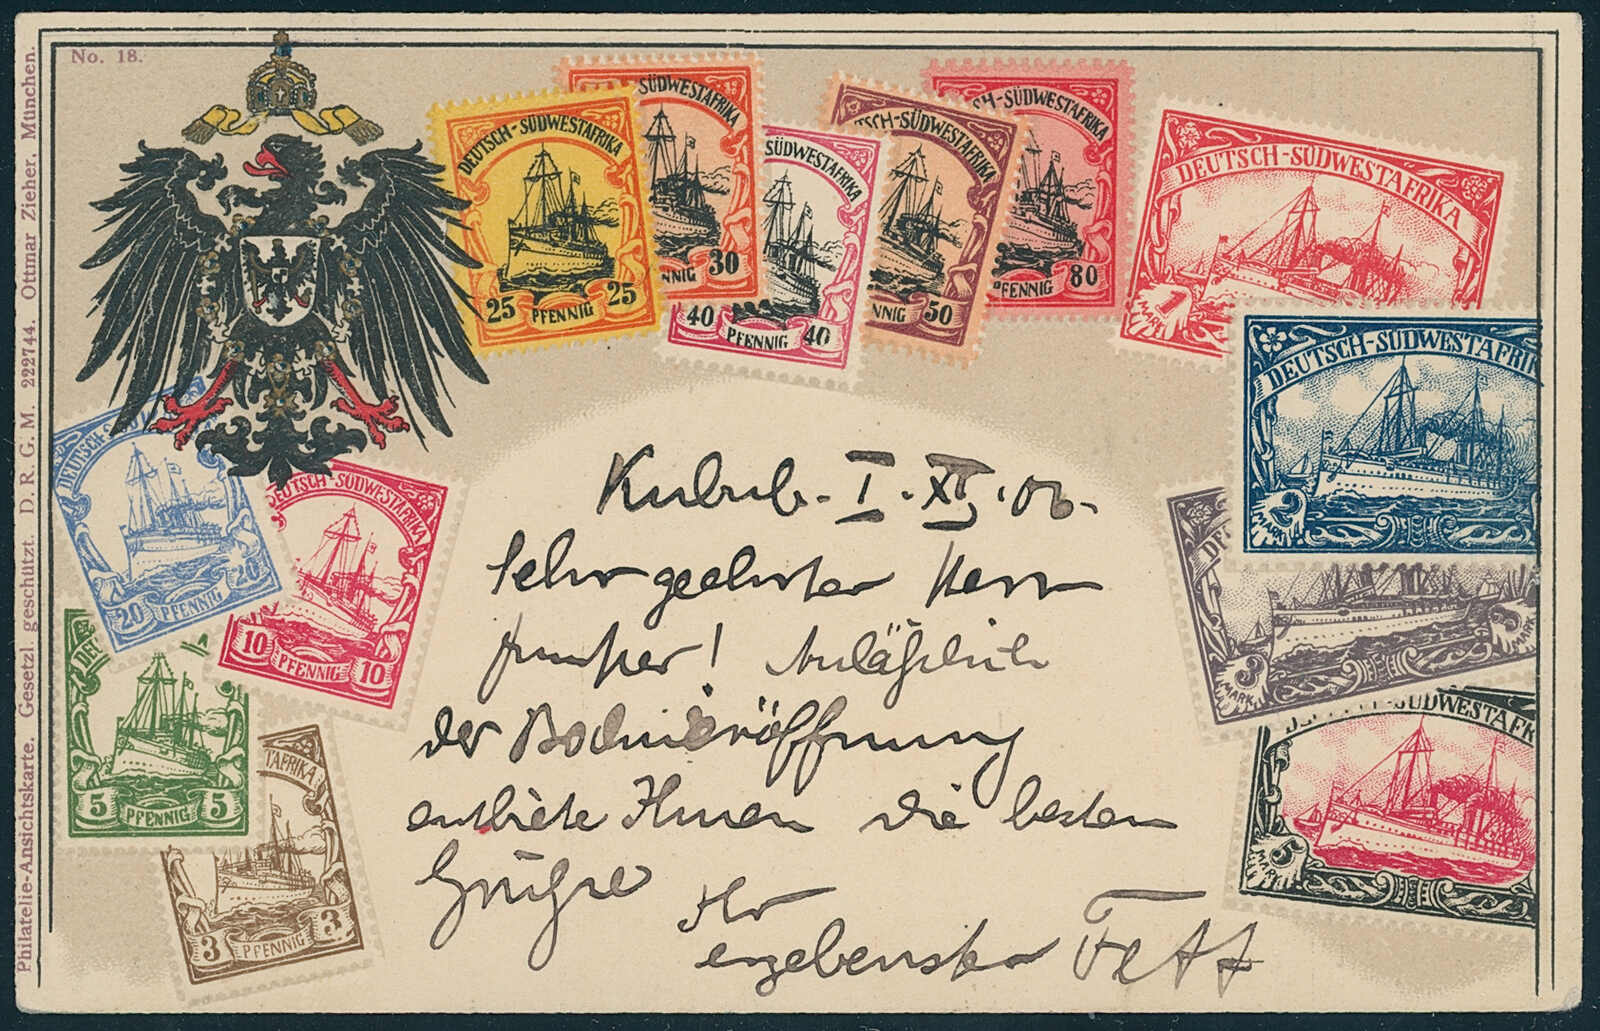 No. 18.
Philatelie-Ansichtskarte. Gesetzl. geschützt. D. R. G. M. 222744. Ottmar Zieher, München.
DEUTSCH-SÜDWESTAFRIKA
25 PFENNIG 25
SÜDWESTAFRIKA
NNIG 30
SÜDWESTAFRIKA
40 PFENNIG 40
TSCH-SÜDWESTAFRIKA
NNIG 50
CH-SÜDWESTAFRIKA
PFENNIG 80
DEUTSCH-SÜDWESTAFRIKA
1 MARK
DEUTSCH-SÜDWESTAFRIK
2 MARK
3 MARK
3 MARK
SÜDWESTAFR
5 MARK
DEUTSCH-SÜ
20 PFENNIG 20
DEUTSCH-SÜDWESTAFRIKA
10 PFENNIG 10
DEU
5 PFENNIG 5
TAFRIKA
3 PFENNIG 3
Kubub. I. XI. 06.
Sehr geehrter Herr
! Anläßlich
der
entbiete Ihnen die besten
Grüße
Ihr
ergebenster